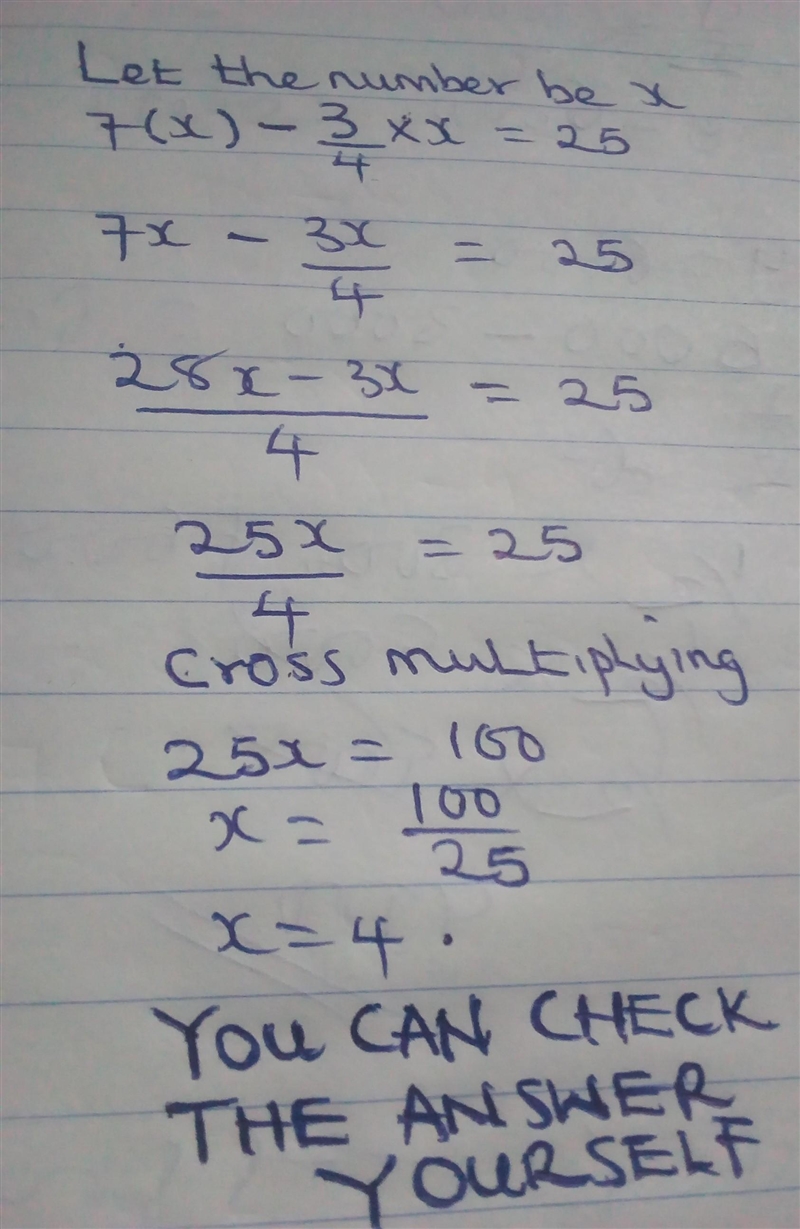 Let the number be x
7(x) - 3/4 × x = 25
7x - 3x/4 = 25
28x - 3x/4 = 25
25x/4 = 25
Cross multiplying
25x = 100
x = 100/25
x = 4 .
YOU CAN CHECK
THE ANSWER
YOURSELF